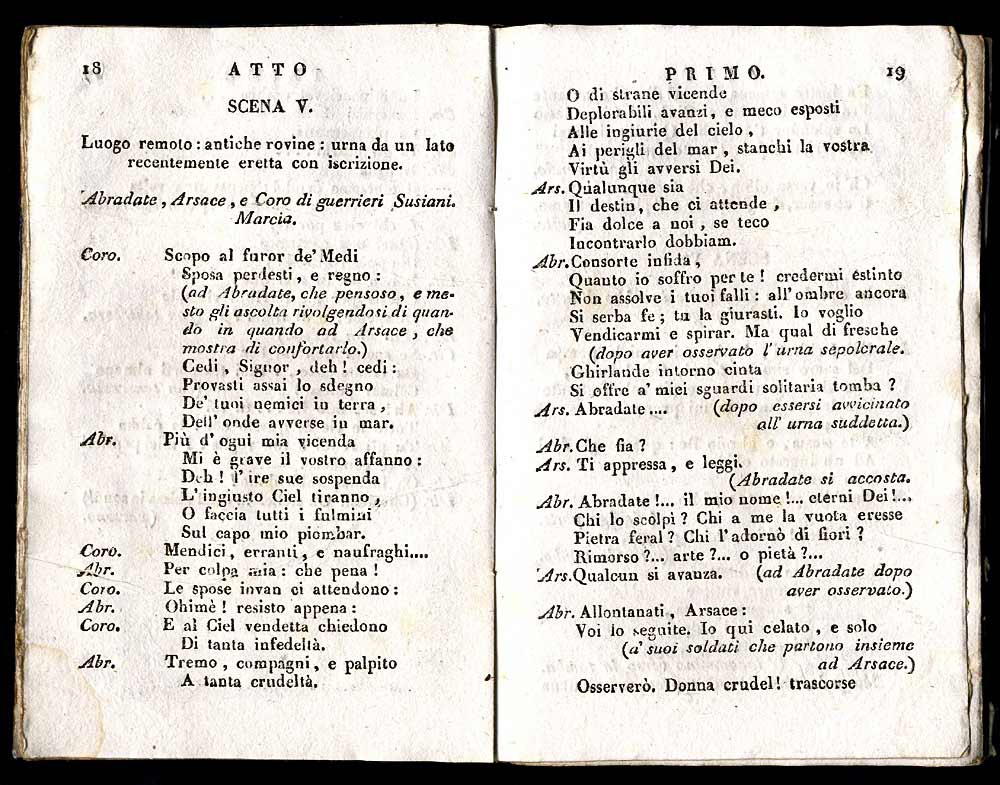 18 ATTO
SCENA V.
Luogo remoto : antiche rovine : urna da un lato
recentemente eretta con iscrizione.
Abradate, Arsace, e Coro di guerrieri Susiani.
Marcia.
Coro. Scopo al furor de' Medi
Sposa perdesti, e regno :
(ad Abradate, che pensoso, e me-
sto gli ascolta rivolgendosi di quan-
do in quando ad Arsace, che
mostra di confortarlo.)
Cedi, Signor, deh! cedi :
Provasti assai lo sdegno
De' tuoi nemici in terra,
Dell' onde avverse in mar.
Abr. Più d' ogni mia vicenda
Mi è grave il vostro affanno :
Deh! l' ire sue sospenda
L' ingiusto Ciel tiranno,
O faccia tutti i fulmini
Sul capo mio piombar.
Coro. Mendici, erranti, e naufraghi....
Abr. Per colpa mia : che pena!
Coro. Le spose invan ci attendono :
Abr. Ohimè! resisto appena :
Coro. E al Ciel vendetta chiedono
Di tanta infedeltà.
Abr. Tremo, compagni, e palpito
A tanta crudeltà.
PRIMO. 19
O di strane vicende
Deplorabili avanzi, e meco esposti
Alle ingiurie del cielo,
Ai perigli del mar, stanchi la vostra
Virtù gli avversi Dei.
Ars. Qualunque sia
Il destin, che ci attende,
Fia dolce a noi, se teco
Incontrarlo dobbiam.
Abr. Consorte infida,
Quanto io soffro per te! credermi estinto
Non assolve i tuoi falli : all' ombre ancora
Si serba fe; tu la giurasti. Io voglio
Vendicarmi e spirar. Ma qual di fresche
(dopo aver osservato l' urna sepolcrale.
Ghirlande intorno cinta
Si offre a' miei sguardi solitaria tomba?
Ars. Abradate.... (dopo essersi avvicinato
all' urna suddetta.)
Abr. Che fia?
Ars. Ti appressa, e leggi.
(Abradate si accosta.
Abr. Abradate!... il mio nome!... eterni Dei!...
Chi lo scolpì? Chi a me la vuota eresse
Pietra feral? Chi l' adornò di fiori?
Rimorso?... arte?... o pietà?...
Ars. Qualcun si avanza. (ad Abradate dopo
aver osservato.)
Abr. Allontanati, Arsace :
Voi lo seguite. Io qui celato, e solo
(a' suoi soldati che partono insieme
ad Arsace.)
Osserverò. Donna crudel! trascorse